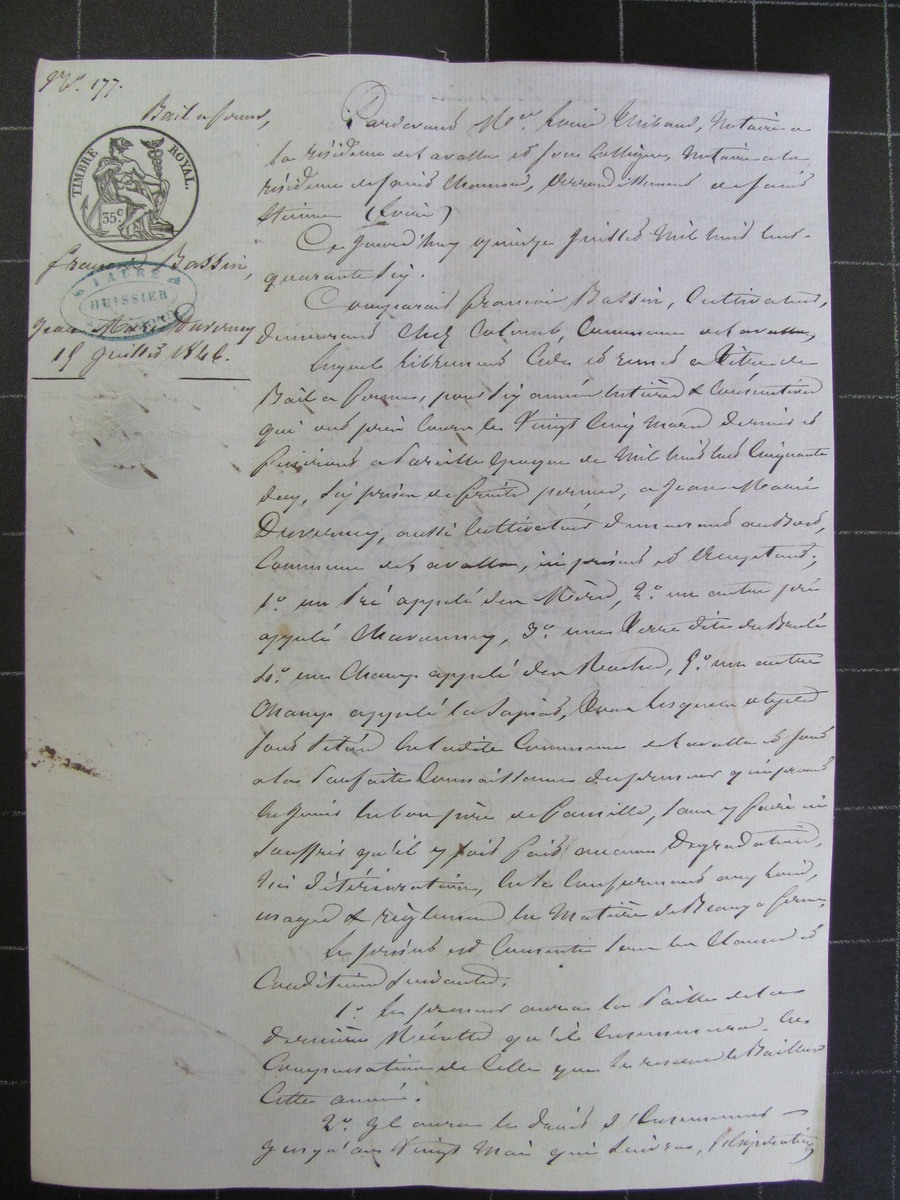 N.° 177.
Bail à ferme,
TIMBRE ROYAL.
35 c
François Bassin,
FAURE
HUISSIER
Jean Marie Duvernay
15 Juillet 1846.
Pardevant Me. Louis Thibaud, Notaire a
la résidence de Lavalla et son Collègue, Notaire a la
résidence de Saint Chamond, arrondissement de Saint
Etienne (Loire)
Ce Jourd'huy quinze Juillet Mil huit cent
quarante six.
Comparait François Bassin, Cultivateur,
demeurant chez Colomb, Commune de Lavalla,
Lequel librement Cède et remet a titre de
Bail a ferme, pour six années Entières & Consécutives
qui ont pris Cours le Vingt Cinq Mars dernier et
finiront a Pareille Epoque de Mil huit cent Cinquante
deux, six prises de fruits permis, a Jean Marie
Duvernay, aussi Cultivateur demeurant au
Commune de Lavalla, ici présent et acceptant;
1.° un Pré appelé 2.° un autre pré
appelé Chavannay, 3.° une Terre dite du Brulé
4.° un Champ appelé des 5.° un autre
Champ appelé la Tous lesquels objets
sont situés en la dite Commune de Lavalla et sont
a la Parfaite Connaissance du preneur qui promet
en Jouir en bon père de famille, sans y faire ni
souffrir qu'il y soit fait aucune Dégradation,
Ni détérioration, en se Conformant aux Lois,
usages & règlement en Matière de Beaux a ferme.
Le présent est Consenti sous les Clauses et
Conditions suivantes.
1.° Le preneur aura la Paille de la
dernière Récolte qu'il Ensemencera en
Compensation de Celle que se réserve le Bailleur
Cette année.
2.° Il aura le droit d'Ensemencer
Jusqu'au Vingt Mai qui suivra, l'Expiration